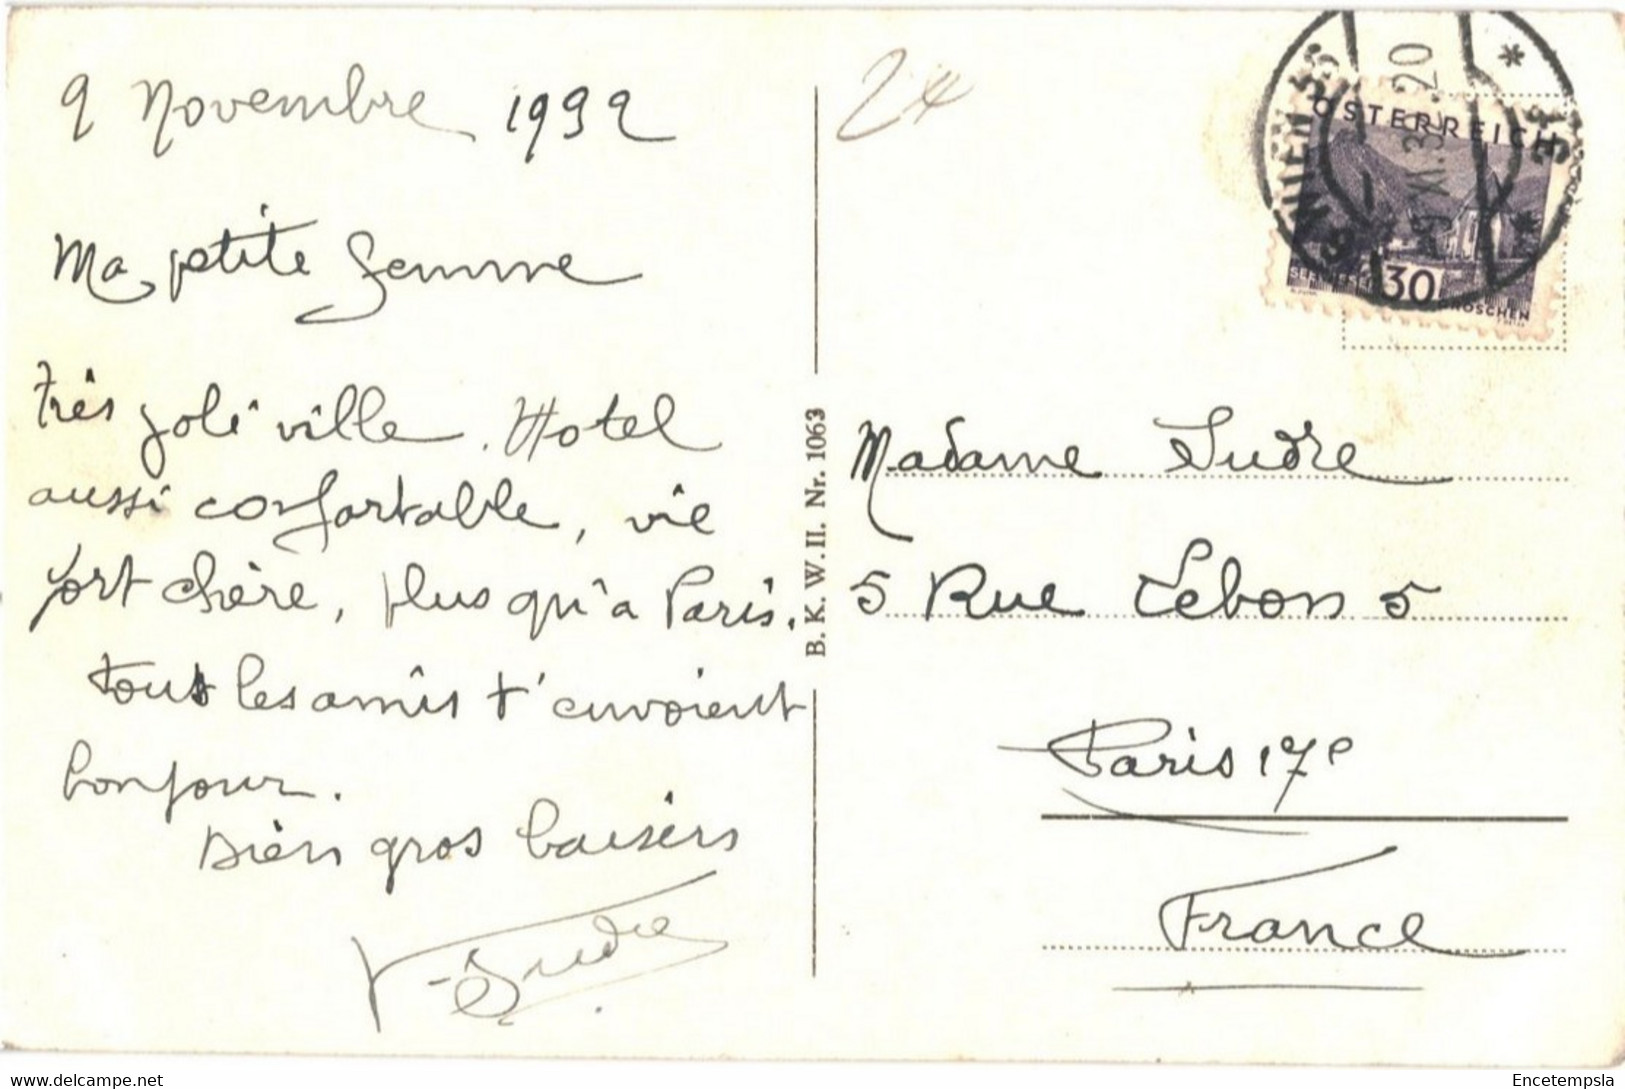 9 Novembre 1932
Ma petite femme
très joli ville. Hotel
aussi confortable, vie
fort chère, plus qu'a Paris.
tous les amis t'envoient
bonjour.
Bien gros baisers
Sudre
B. K. W. II. Nr. 1063
24
WIEN 55
20
ÖSTERREICH
30
GROSCHEN
Madame Sudre
5 Rue Lebon 5
Paris 17e
France
www.delcampe.net
Encetempsla